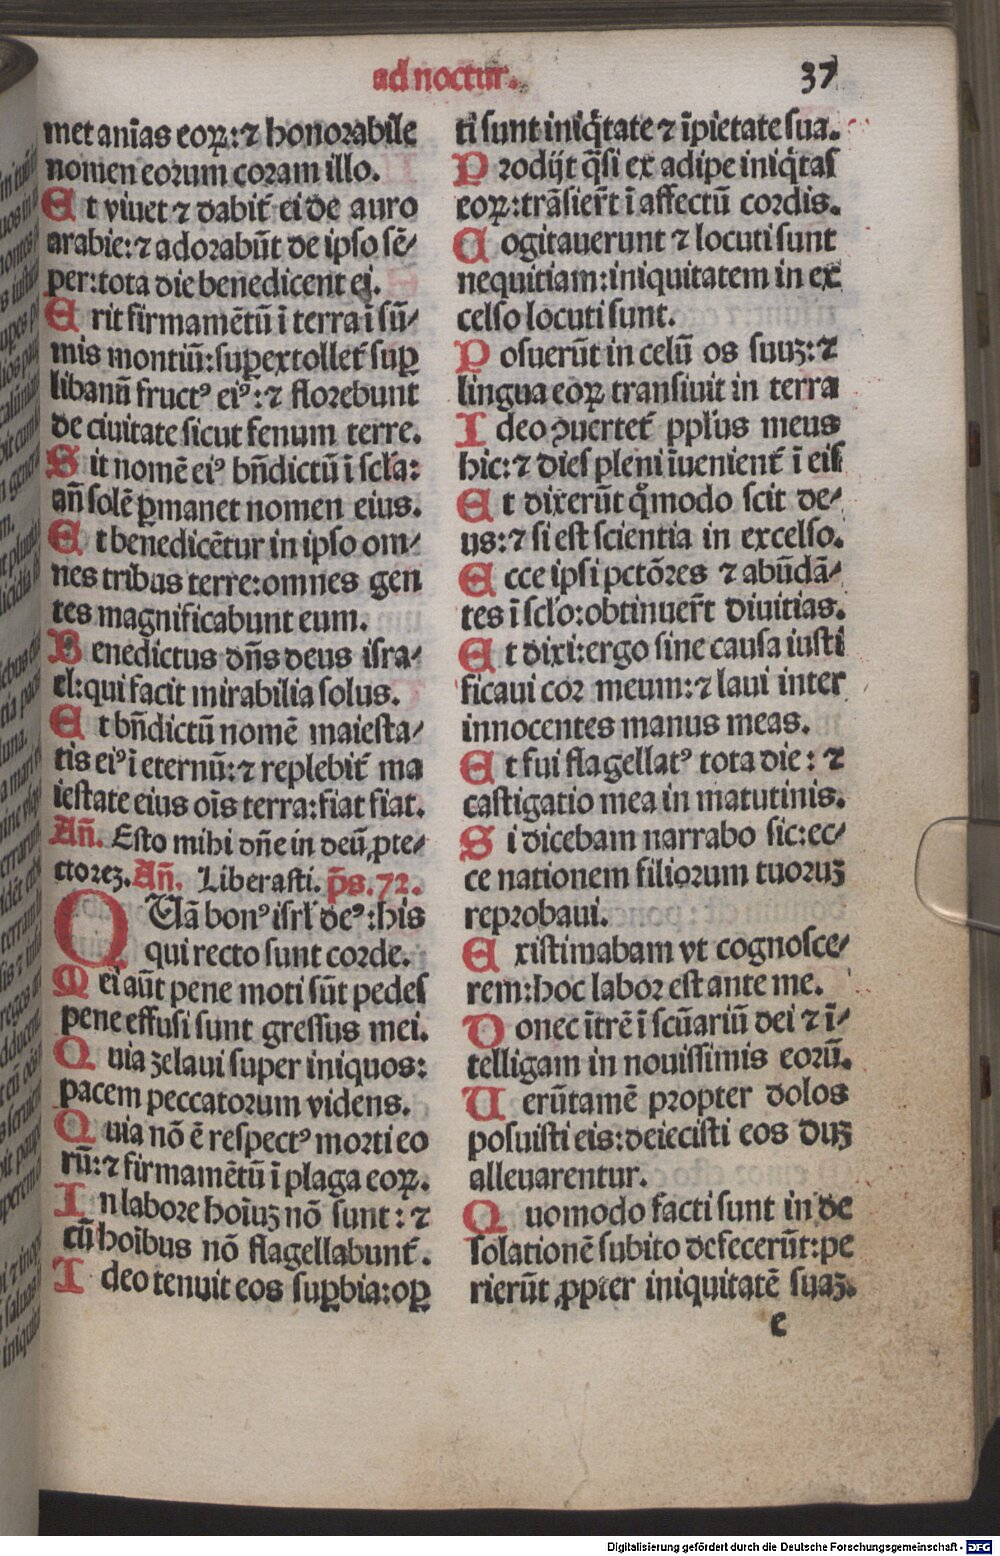 ad noctur.
37
met anīas eoꝝ: ⁊ honorabile
nomen eorum coram illo.
Et viuet ⁊ dabit᷑ ei de auro
arabie: ⁊ adorabūt de ipso sē⸗
per: tota die benedicent ei.
Erit firmamētū ī terra ī sū⸗
mis montiū: suꝑextollet᷑ suꝑ
libanū fructꝰ eiꝰ: ⁊ florebunt
de ciuitate sicut fenum terre.
Sit nomē eiꝰ bn̄dictū ī scl̄a:
an̄ solē ꝑmanet nomen eius.
Et benedicētur in ipso om⸗
nes tribus terre: omnes gen
tes magnificabunt eum.
Benedictus dn̄s deus isra⸗
el: qui facit mirabilia solus.
Et bn̄dictū nomē maiesta⸗
tis eiꝰ ī eternū: ⁊ replebit᷑ ma
iestate eius oīs terra: fiat fiat.
An̄. Esto mihi dn̄e in deū ꝓte⸗
ctoreꝫ. An̄. Liberasti. p̄s. 72.
QUā bonꝰ isrl̄ deꝰ: his
qui recto sunt corde.
Mei aūt pene moti sūt pedes
pene effusi sunt gressus mei.
Quia zelaui super iniquos:
pacem peccatorum videns.
Quia nō ē respectꝰ morti eo
rū: ⁊ firmamētū ī plaga eoꝝ.
In labore hoīuꝫ nō sunt: ⁊
cū hoībus nō flagellabunt᷑.
Ideo tenuit eos suꝑbia: oꝑ
ti sunt iniq̇tate ⁊ īpietate sua.
Prodijt q̄si ex adipe iniq̇tas
eoꝝ: trāsier̄t ī affectū cordis.
Cogitauerunt ⁊ locuti sunt
nequitiam: iniquitatem in ex
celso locuti sunt.
Posuerūt in celū os suuꝫ: ⁊
lingua eoꝝ transiuit in terra
Ideo ꝯuertet᷑ ppl̄us meus
hic: ⁊ dies pleni īuenient᷑ ī eis
Et dixerūt q̊modo scit de⸗
us: ⁊ si est scientia in excelso.
Ecce ipsi pctōres ⁊ abūdā⸗
tes ī scl̄o: obtinuer̄t diuitias.
Et dixi: ergo sine causa iusti
ficaui cor meum: ⁊ laui inter
innocentes manus meas.
Et fui flagellatꝰ tota die: ⁊
castigatio mea in matutinis.
Si dicebam narrabo sic: ec⸗
ce nationem filiorum tuoruꝫ
reprobaui.
Existimabam vt cognosce⸗
rem: hoc labor est ante me.
Donec ītrē ī scūariū dei ⁊ ī⸗
telligam in nouissimis eorū.
Uerūtamē propter dolos
posuisti eis: deiecisti eos duꝫ
alleuarentur.
Quomodo facti sunt in de
solationē subito defecerūt: pe
rierūt ꝓpter iniquitatē suaꝫ.
e
Digitalisierung gefördert durch die Deutsche Forschungsgemeinschaft - DFG